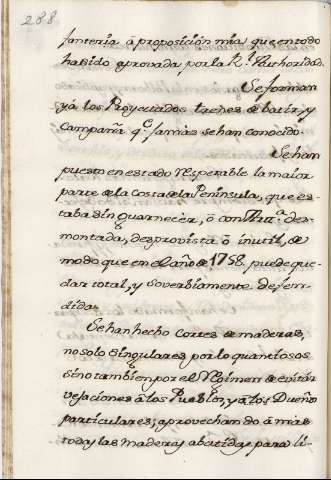 288
fanteria à proposiciòn mia que en todo
ha sido aprovada por la Rl. Authoridad.
Se forman
yá los Proyectados trenes de batir, y
Campaña qe. jamàs se han conocido.
Se han
puesto en estado respetable la maior
parte de la Costa de la Peninsula, que es-
taba sin guarnecèr, ò con Arta. des-
montada, desprovista ò inutil, de
modo que en el año de 1758. puede que-
dar total, y soverbiamente defen-
dida.
Se han hecho Cortes de maderas,
no solo singulares por lo quantiosos
sino tambien por el Regimen de evitàr
vejaciones à los Pueblos, y à los Dueños
particulares; aprovechando à mas
todas las maderas abatidas para li-